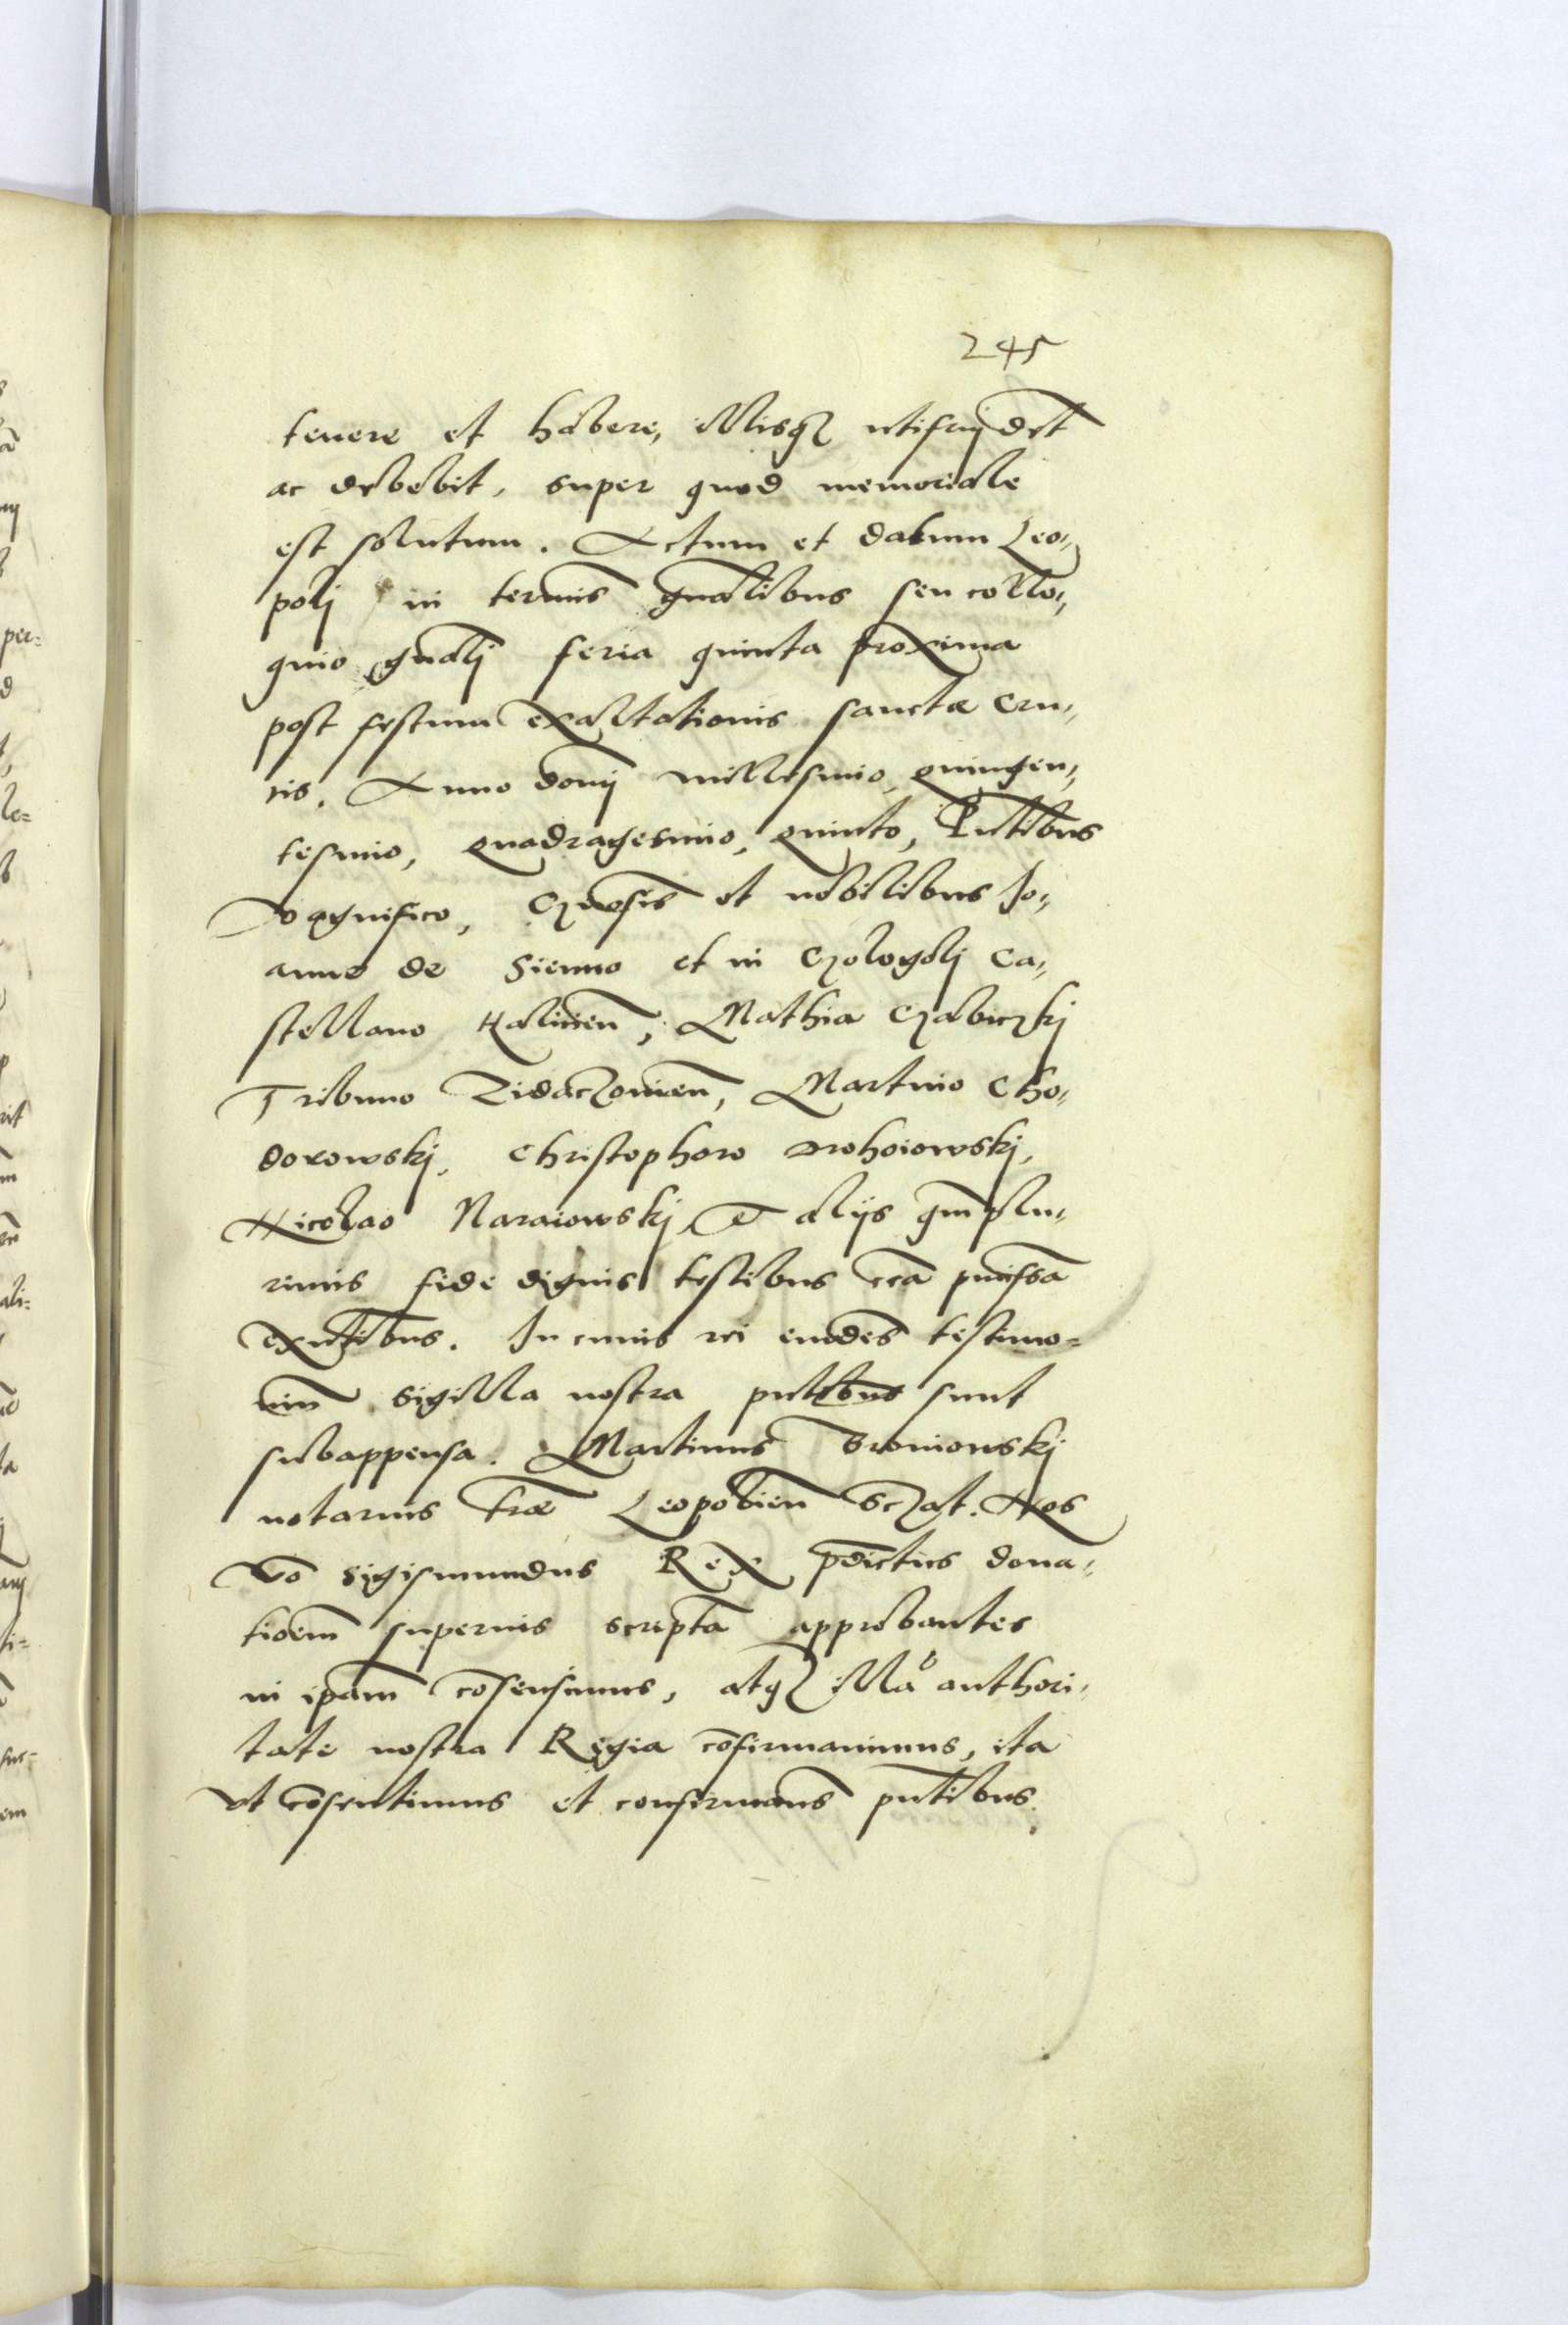 245
tenere et habere, illisq₃ utifruj debt̄
ac debebit, super quod memoriale
est solutum. Actum et datum Leo⸗
polj in termīs gn̄alibus seu collo⸗
quio gn̄alj feria quinta proxima
post festum exaltationis sanctæ Cru⸗
cis. Anno domj̄ millesimo, quingen⸗
tesimo, quadragesimo, quinto, Pn̄tibus
Magnifico, et nobilibus Jo⸗
anne de Sienno et in Ca⸗
stellano Halicien̄, Mathia
Tribuno Zidaczouien̄, Martino Cho⸗
dorowskj, Christophoro Drohoiowskj,
Nicolao Naraiowskj Et alijs qm̄plu⸗
rimis fide dignis testibus cc̄a pm̄issa
exn̄tibus. In cuius rei euidēs testimo⸗
niū sigilla nostra pn̄tibus sunt
subappensa. Martinus Broniowskj
notarius tr̄æ Leopolien̄ Sczat. Nos
v̄o Sigismundus Rex p̄dictus dona⸗
tioem̄ superius scriptā approbantes
in ip̄am cōsensimus, atq₃ illā authori⸗
tate nostra Regia cōfirmauimus, ita
vt cōsentimus et confirmam̄s pn̄tibus.